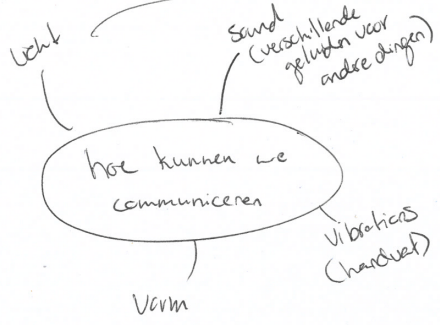 licht
sound
(verschillende
geluiden voor
andere dingen)
hoe kunnen we
communiceren
vibrations
(handvat)
Vorm